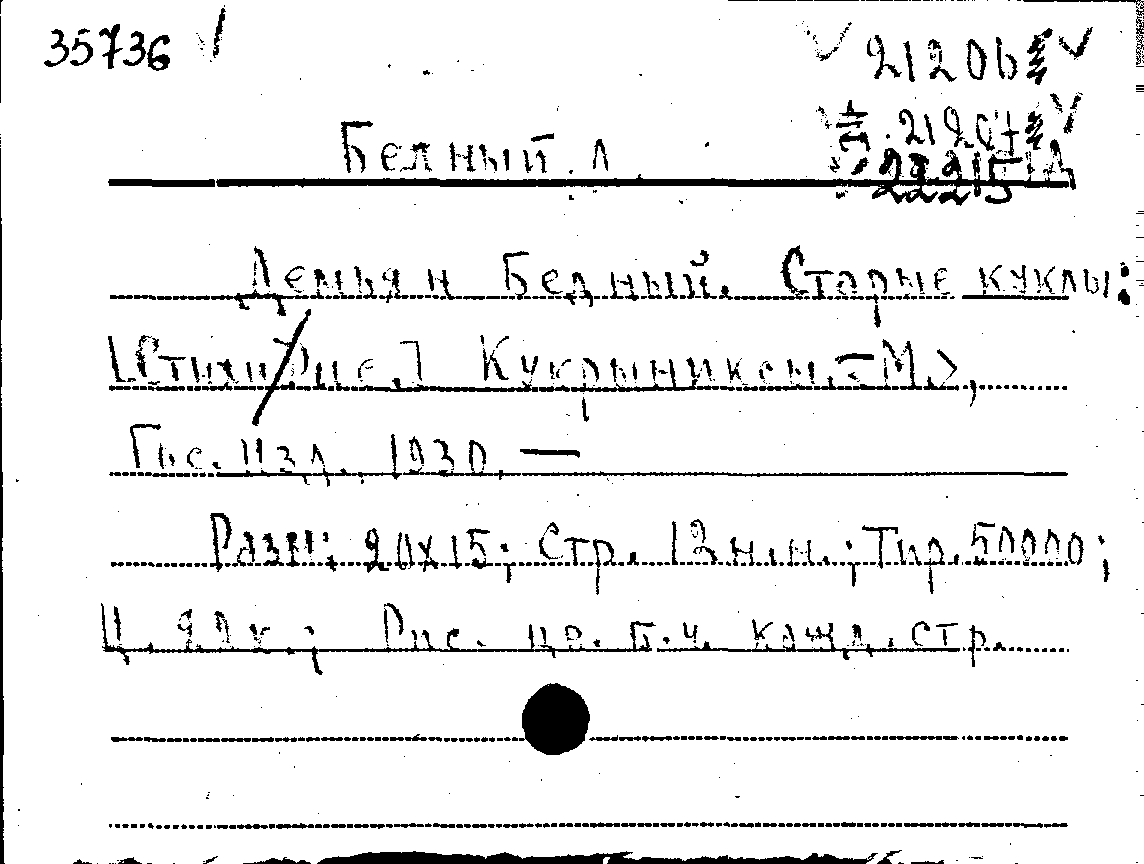 35736 21206
21207
Бедный Д. 22215
Демьян Бедный. Старые куклы:
[Стихи/Рис.] Кукрыниксы. - М.>,
Гос. Изд., 1930. —
Разм: 20х15; Стр. 12 н.н.; Тир. 50000;
Ц. 22 к.; Рис. цв. б.ч. кажд. стр.